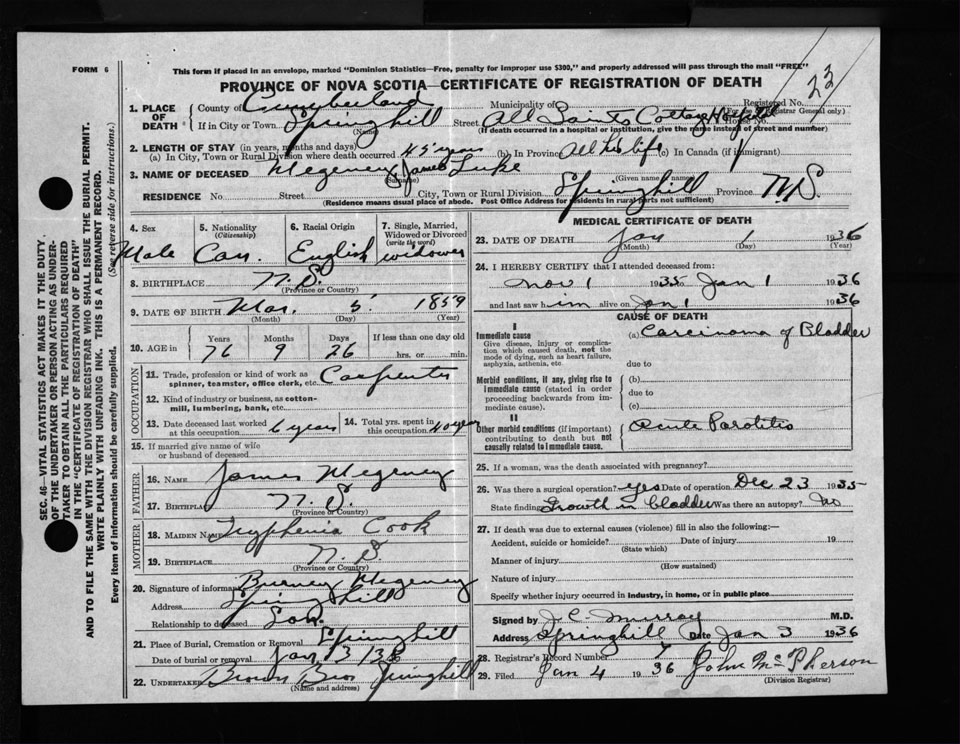 23
FORM 6
This form if placed in an envelope, marked "Dominion Statistics—Free, penalty for improper use $300," and properly addressed will pass through the mail "FREE"
PROVINCE OF NOVA SCOTIA—CERTIFICATE OF REGISTRATION OF DEATH
SEC. 46—VITAL STATISTICS ACT MAKES IT THE DUTY
OF THE UNDERTAKER OR PERSON ACTING AS UNDER-
TAKER TO OBTAIN ALL THE PARTICULARS REQUIRED
IN THE "CERTIFICATE OF REGISTRATION OF DEATH"
AND TO FILE THE SAME WITH THE DIVISION REGISTRAR WHO SHALL ISSUE THE BURIAL PERMIT.
WRITE PLAINLY WITH UNFADING INK. THIS IS A PERMANENT RECORD.
Every item of information should be carefully supplied. (See reverse side for instructions.)
1. PLACE OF DEATH County of Cumberland Municipality of Registered No.
(For use of Registrar General only)
If in City or Town Springhill Street All Saints Cottage Hospital House No.
(Name) (If death occurred in a hospital or institution, give the name instead of street and number)
2. LENGTH OF STAY (in years, months and days)
(a) In City, Town or Rural Division where death occurred 45 years (b) In Province All his life (c) In Canada (if immigrant)
3. NAME OF DECEASED Megeney James Luke
(Surname) (Given name or names)
RESIDENCE No. Street City, Town or Rural Division Springhill Province N.S.
(Residence means usual place of abode. Post Office Address for residents in rural parts not sufficient)
4. Sex 5. Nationality (Citizenship) 6. Racial Origin 7. Single, Married, Widowed or Divorced (write the word)
Male Can. English widower
8. BIRTHPLACE N.S.
(Province or Country)
9. DATE OF BIRTH Mar. 5 1859
(Month) (Day) (Year)
10. AGE in Years Months Days If less than one day old
76 9 26 hrs. or min.
OCCUPATION
11. Trade, profession or kind of work as spinner, teamster, office clerk, etc. Carpenter
12. Kind of industry or business, as cotton-mill, lumbering, bank, etc.
13. Date deceased last worked at this occupation 6 years 14. Total yrs. spent in this occupation 40 years
15. If married give name of wife or husband of deceased
FATHER
16. NAME James Megeney
17. BIRTHPLACE N.S.
(Province or Country)
MOTHER
18. MAIDEN NAME Tryphenia Cook
19. BIRTHPLACE N.S
(Province or Country)
20. Signature of informant Burney Megeney
Address Springhill
Relationship to deceased Son.
21. Place of Burial, Cremation or Removal Springhill
Date of burial or removal Jan 3/36
22. UNDERTAKER Brown Bros Springhill
(Name and address)
MEDICAL CERTIFICATE OF DEATH
23. DATE OF DEATH Jan 1 1936
(Month) (Day) (Year)
24. I HEREBY CERTIFY that I attended deceased from:
Nov 1 1935 to Jan 1 1936
and last saw him alive on Jan 1 1936
CAUSE OF DEATH
I
Immediate cause (a) Carcinoma of Bladder
Give disease, injury or complication which caused death, not the mode of dying, such as heart failure, asphyxia, asthenia, etc. due to
Morbid conditions, if any, giving rise to immediate cause (stated in order proceeding backwards from immediate cause). (b)
due to
(c)
II
Other morbid conditions (if important) contributing to death but not causally related to immediate cause. Acute Parotitis
25. If a woman, was the death associated with pregnancy?
26. Was there a surgical operation? yes Date of operation Dec 23 1935
State findings Growth in bladder Was there an autopsy? No
27. If death was due to external causes (violence) fill in also the following:—
Accident, suicide or homicide? Date of injury 19
(State which)
Manner of injury
(How sustained)
Nature of injury
Specify whether injury occurred in industry, in home, or in public place
Signed by J C Murray M.D.
Address Springhill Date Jan 3 1936
28. Registrar's Record Number 7
29. Filed Jan 4 1936 John McPherson
(Division Registrar)